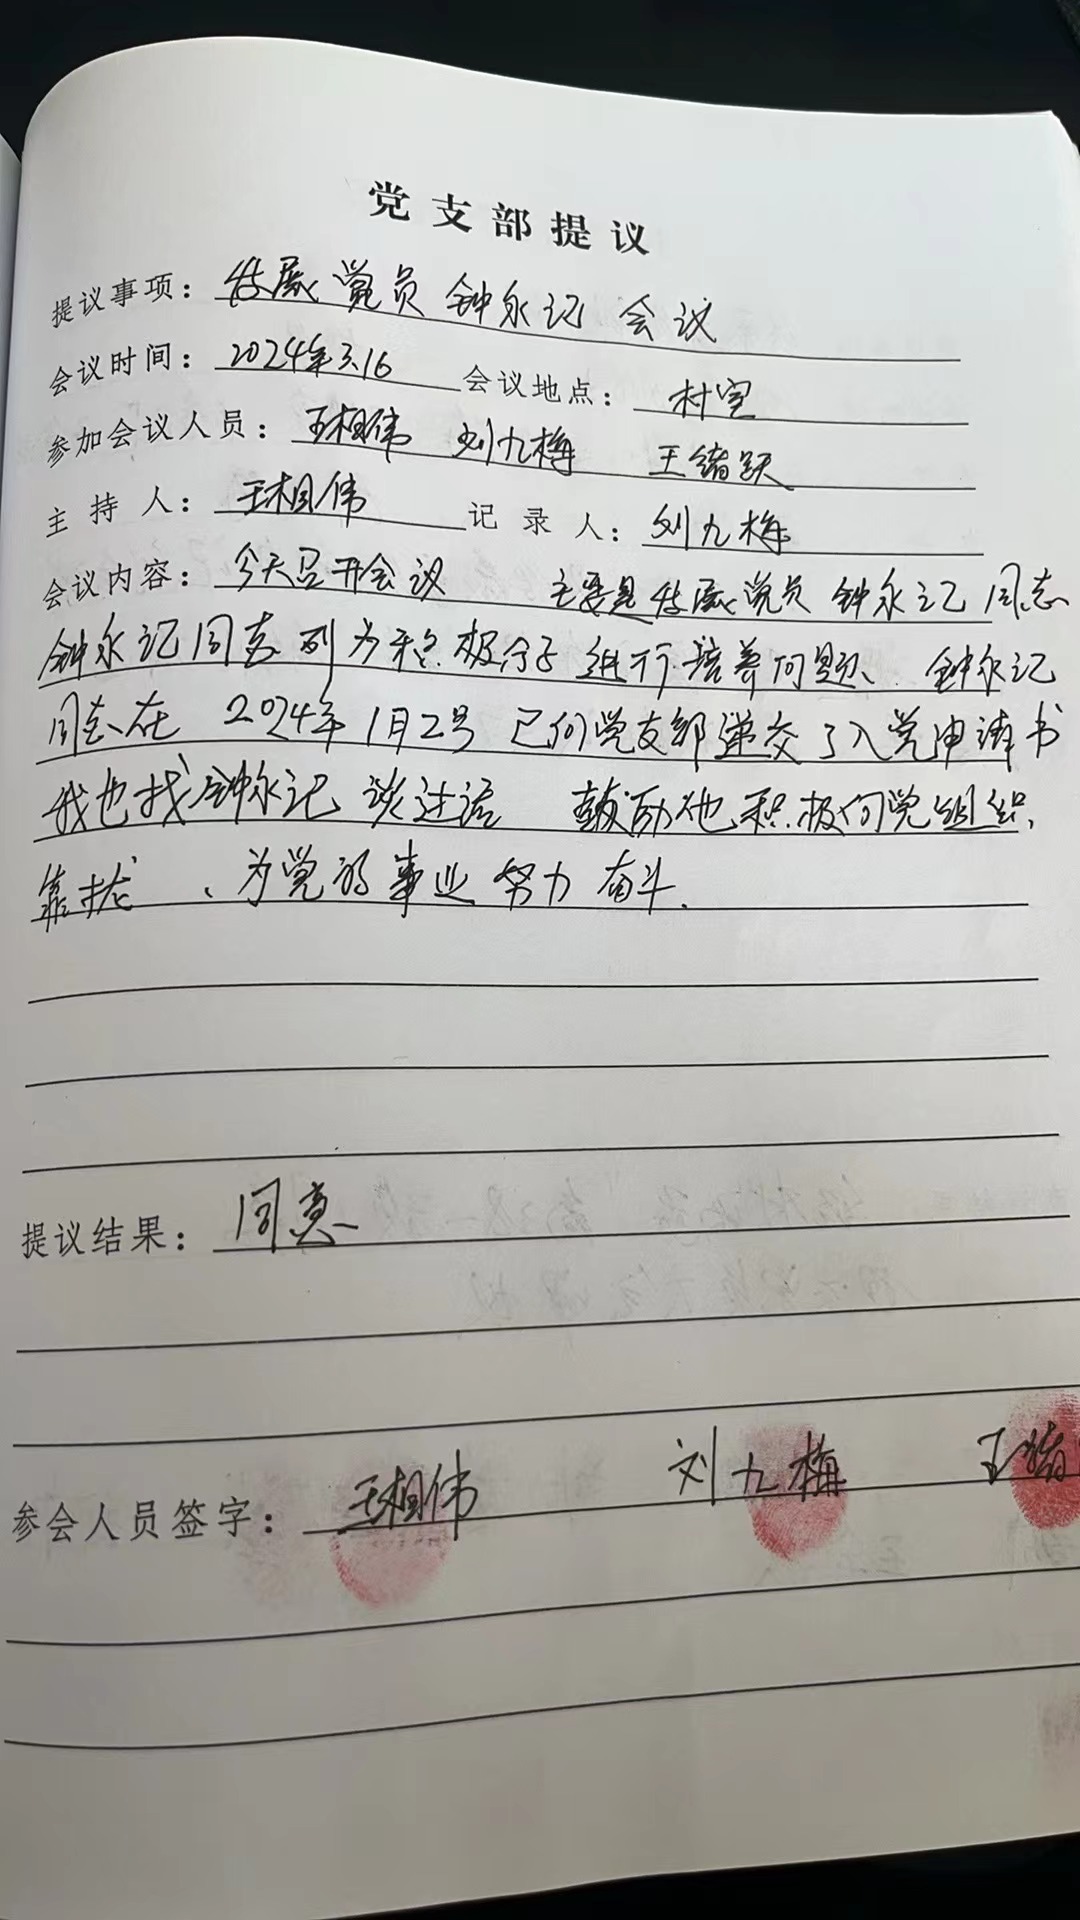 党支部提议
提议事项：发展党员钟永记会议
会议时间：2024年3.16 会议地点：村室
参加会议人员：王相伟 刘九梅 王绪跃
主持人：王相伟 记录人：刘九梅
会议内容：今天召开会议 主要是发展党员钟永记同志
钟永记同志列为积极分子进行培养问题、钟永记
同志在2024年1月2号已向党支部递交了入党申请书
我也找钟永记谈过话 鼓励他积极向党组织
靠拢、为党的事业努力奋斗、
提议结果：同意
参会人员签字：王相伟 刘九梅 王绪